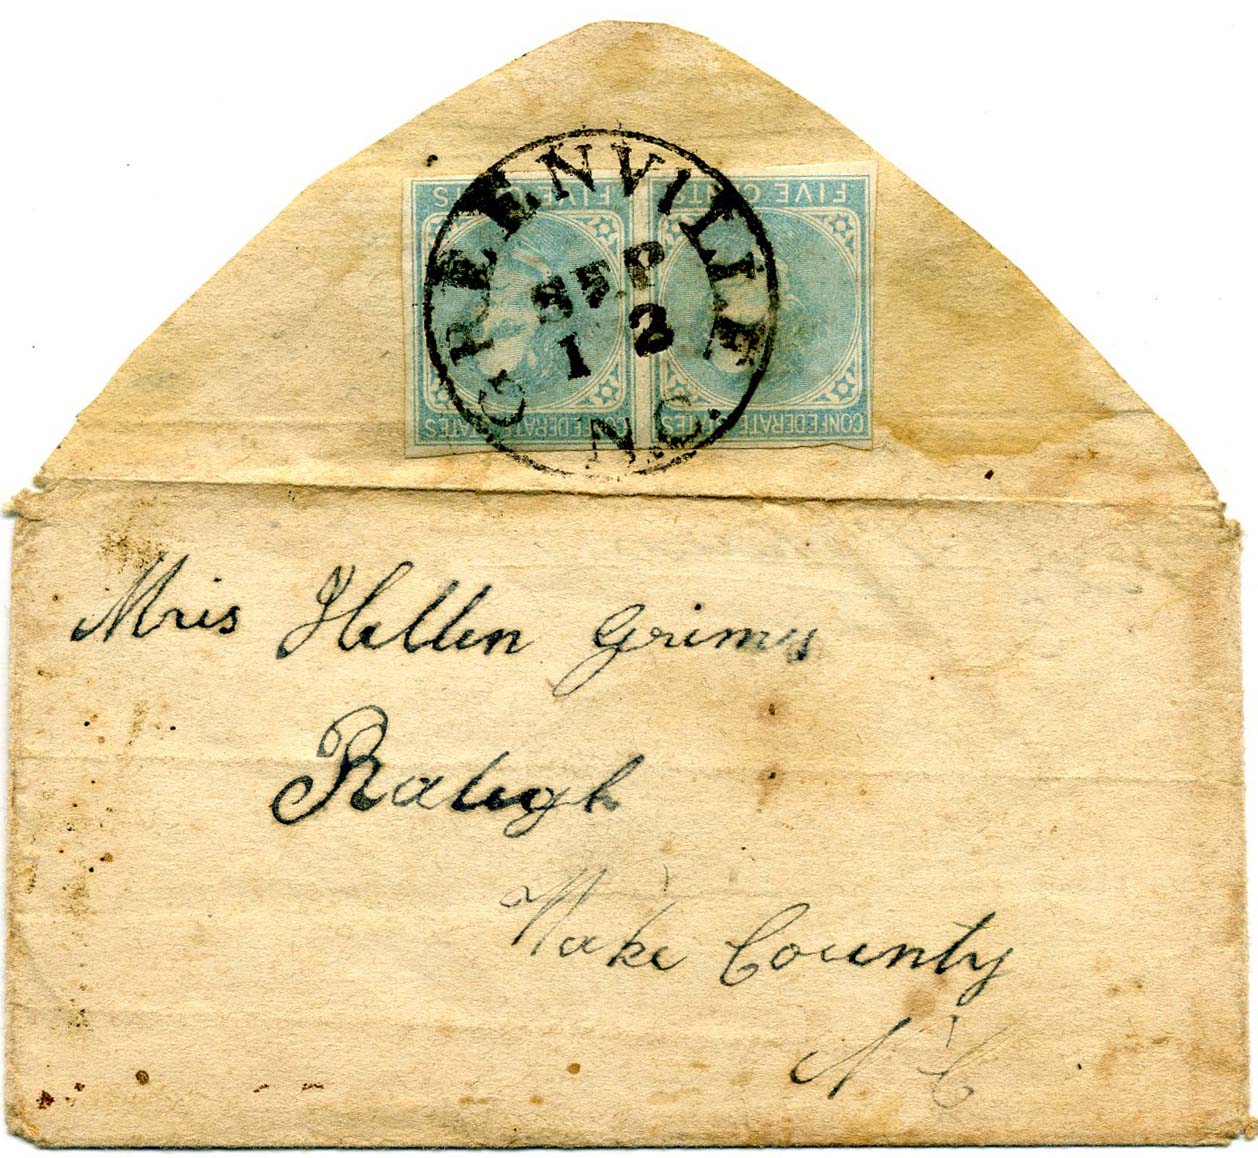 FIVE CENTS
FIVE CENTS
CONFEDERATE STATES
CONFEDERATE STATES
GREENVILLE
SEP
12
N.C.
Mris Hellen Grimes
Raleigh
Wake County
N C